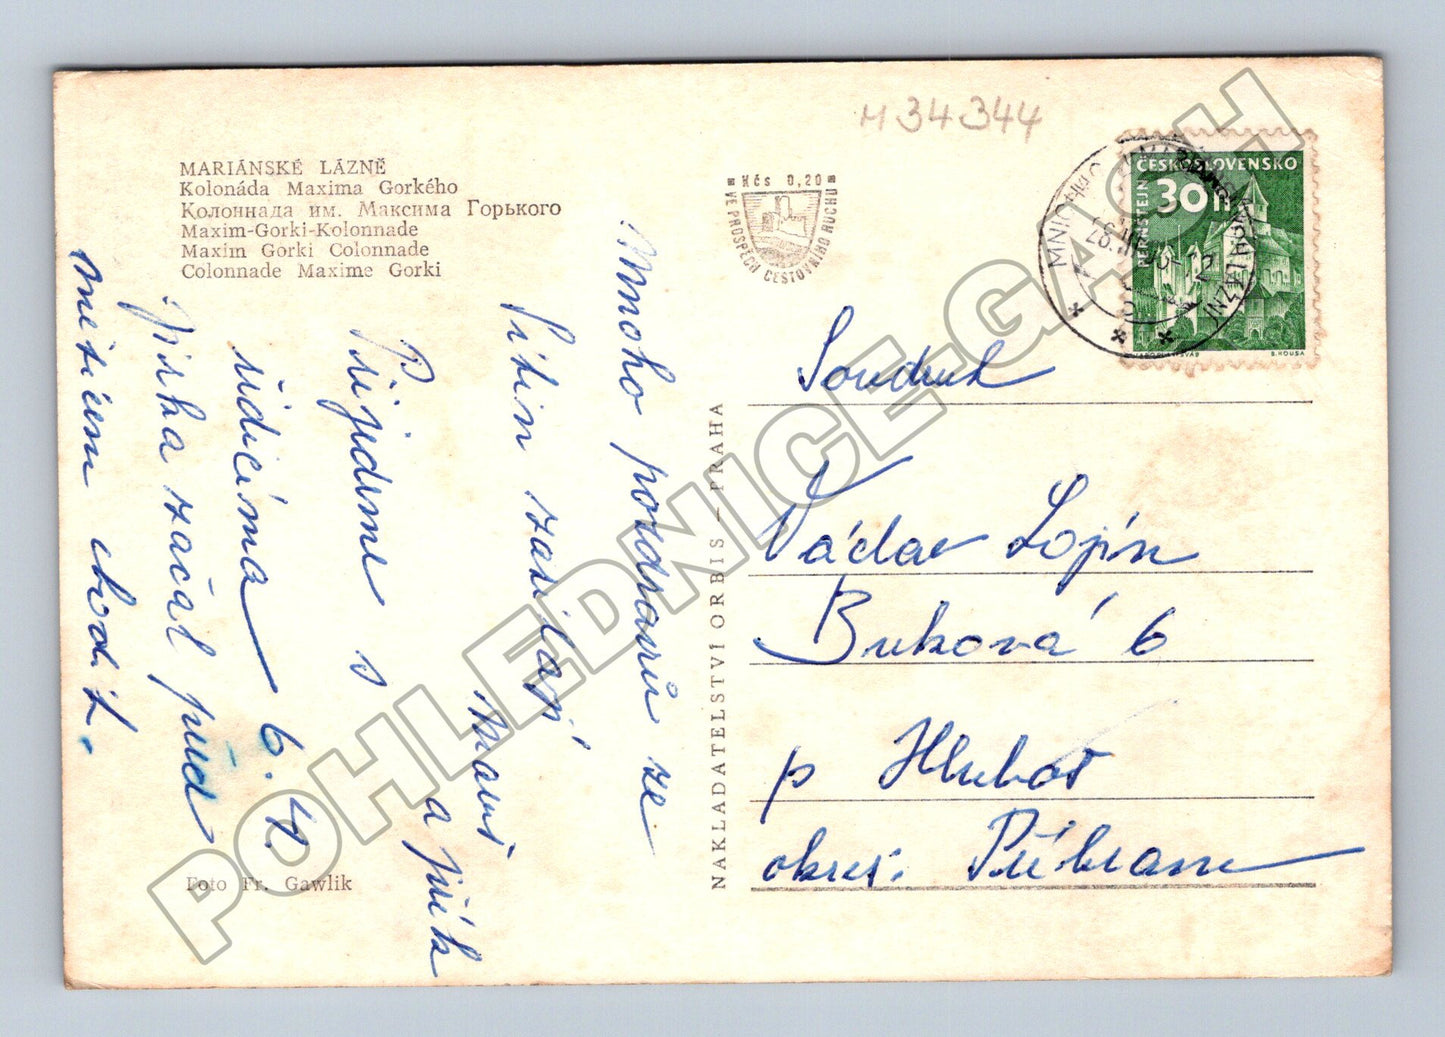 M 34344
MARIÁNSKÉ LÁZNĚ
Kolonáda Maxima Gorkého
Колоннада им. Максима Горького
Maxim-Gorki-Kolonnade
Maxim Gorki Colonnade
Colonnade Maxime Gorki
Kčs 0,20
VE PROSPĚCH CESTOVNÍHO RUCHU
ČESKOSLOVENSKO
30 h
PERNŠTEJN
JAROSLAV ŠVÁB
B. HOUSA
MNICHOV
Mnoho pozdravů ze
Sítin zasílají
mamí
a jiřík
Přijedeme s
řidičíma 6. 4.
Jirka začal před
měsícem chodit.
Soudruh
Václav Lojín
Buková 6
p Hluboš
okres: Příbram
NAKLADATELSTVÍ ORBIS – PRAHA
Foto Fr. Gawlik
POHLEDNICE-GACH